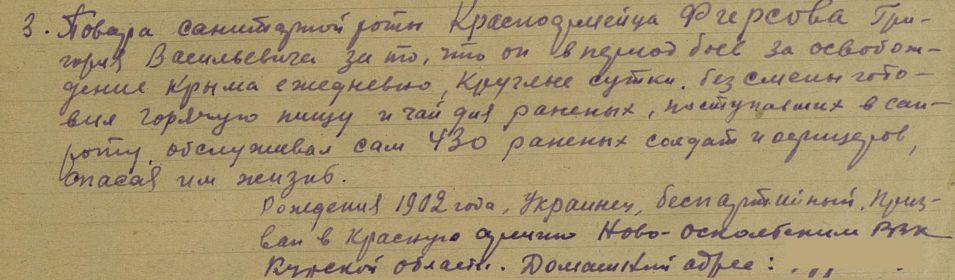 3. Повара санитарной роты Красноармейца Фирсова Гри-
гория Васильевича за то, что он в период боев за освобож-
дение Крыма ежедневно, круглые сутки, без смены гото-
вил горячую пищу и чай для раненых, поступавших в сан-
роту, обслуживал сам 430 раненых солдат и офицеров,
спасая им жизнь.
Рождения 1902 года, Украинец, беспартийный. Приз-
ван в Красную армию Ново-Оскольским РВК
Курской области. Домашний адрес: „ „